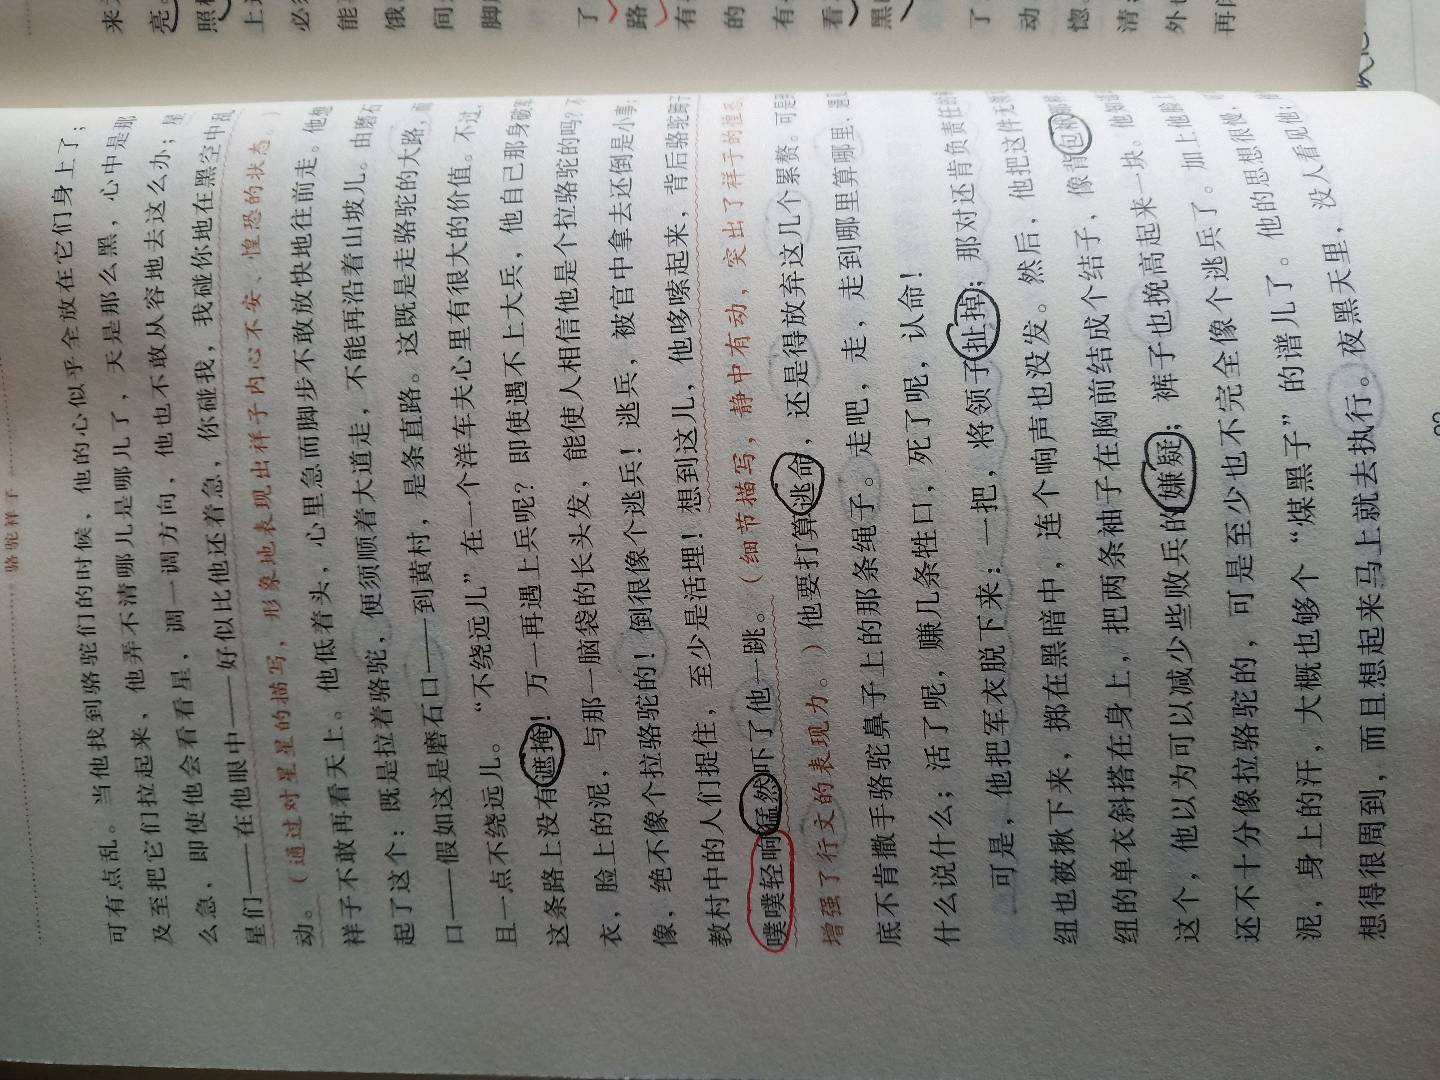 骆驼祥子
可有点乱。当他找到骆驼们的时候，他的心似乎全放在它们身上了；
及至把它们拉起来，他弄不清哪儿是哪儿了，天是那么黑，心中是那
么急，即使他会看看星，调一调方向，他也不敢从容地去这么办；星
星们——在他眼中——好似比他还着急，你碰我，我碰你地在黑空中乱
动。（通过对星星的描写，形象地表现出祥子内心不安、惶恐的状态。）
祥子不敢再看天上。他低着头，心里急而脚步不敢放快地往前走。他想
起了这个：既是拉着骆驼，便须顺着大道走，不能再沿着山坡儿。由磨石
口——假如这是磨石口——到黄村，是条直路。这既是走骆驼的大路，而
且一点不绕远儿。“不绕远儿”在一个洋车夫心里有很大的价值。不过，
这条路上没有遮掩！万一再遇上兵呢？即使遇不上大兵，他自己那身破军
衣，脸上的泥，与那一脑袋的长头发，能使人相信他是个拉骆驼的吗？不
像，绝不像个拉骆驼的！倒很像个逃兵！逃兵，被官中拿去还倒是小事；
教村中的人们捉住，至少是活埋！想到这儿，他哆嗦起来，背后骆驼蹄子
噗噗轻响猛然吓了他一跳。（细节描写，静中有动，突出了祥子的惶恐，
增强了行文的表现力。）他要打算逃命，还是得放弃这几个累赘。可是到
底不肯撒手骆驼鼻子上的那条绳子。走吧，走，走到哪里算哪里，遇见
什么说什么；活了呢，赚几条牲口，死了呢，认命！
可是，他把军衣脱下来：一把，将领子扯掉；那对还肯负责任的
纽也被揪下来，掷在黑暗中，连个响声也没发。然后，他把这件无领无
纽的单衣斜搭在身上，把两条袖子在胸前结成个结子，像背包袱那样。
这个，他以为可以减少些败兵的嫌疑；裤子也挽高起来一块。他知道
还不十分像拉骆驼的，可是至少也不完全像个逃兵了。加上他脸上
泥，身上的汗，大概也够个“煤黑子”的谱儿了。他的思想很慢，
想得很周到，而且想起来马上就去执行。夜黑天里，没人看见他；